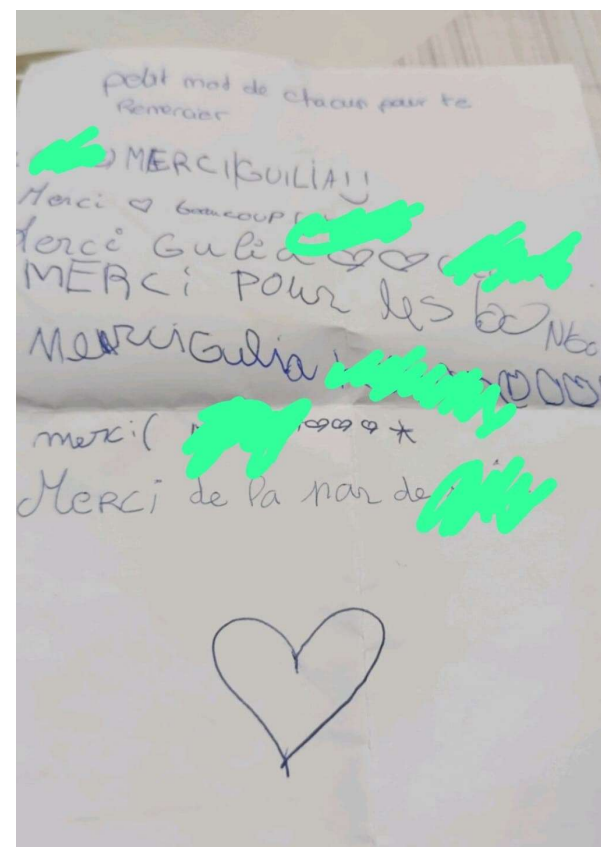 petit mot de chacun pour te
Remercier
MERCI GUILIA!!
Merci ♡ beaucoup
Merci Gulia ♡♡
MERCi POUR les bonbo
Merci Gulia ♡♡♡
merci( ♡♡♡ *
MERCi de la par de